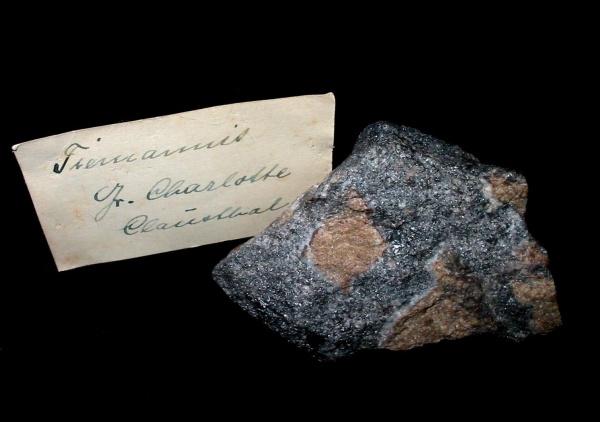 Tiemannit
Gr. Charlotte
Clausthal